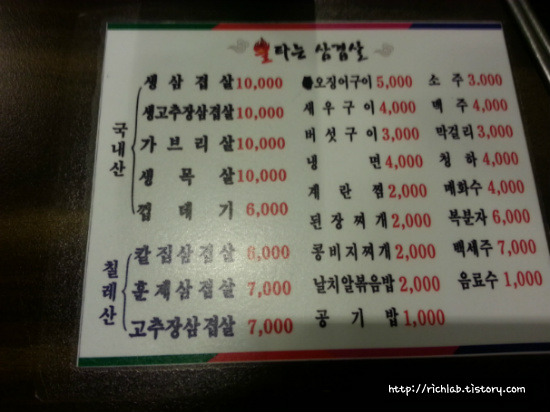 불타는 삼겹살
국내산
생삼겹살 10,000
생고추장삼겹살 10,000
가브리살 10,000
생목살 10,000
껍데기 6,000
칠레산
칼집삼겹살 6,000
훈제삼겹살 7,000
고추장삼겹살 7,000
오징어구이 5,000
새우구이 4,000
버섯구이 3,000
냉면 4,000
계란찜 2,000
된장찌개 2,000
콩비지찌개 2,000
날치알볶음밥 2,000
공기밥 1,000
소주 3.000
맥주 4,000
막걸리 3,000
청하 4,000
매화수 4,000
복분자 6,000
백세주 7,000
음료수 1,000
http://richlab.tistory.com